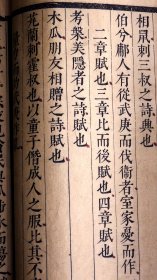 相鼠刺三叔之詩興也
伯兮鄘人有從武庚而伐衞者室家憂而作
二章賦也三章比而後賦也四章賦也
考槃美隱者之詩賦也
木瓜朋友相贈之詩賦也
芄蘭刺霍叔也以童子僭成人之服比其不